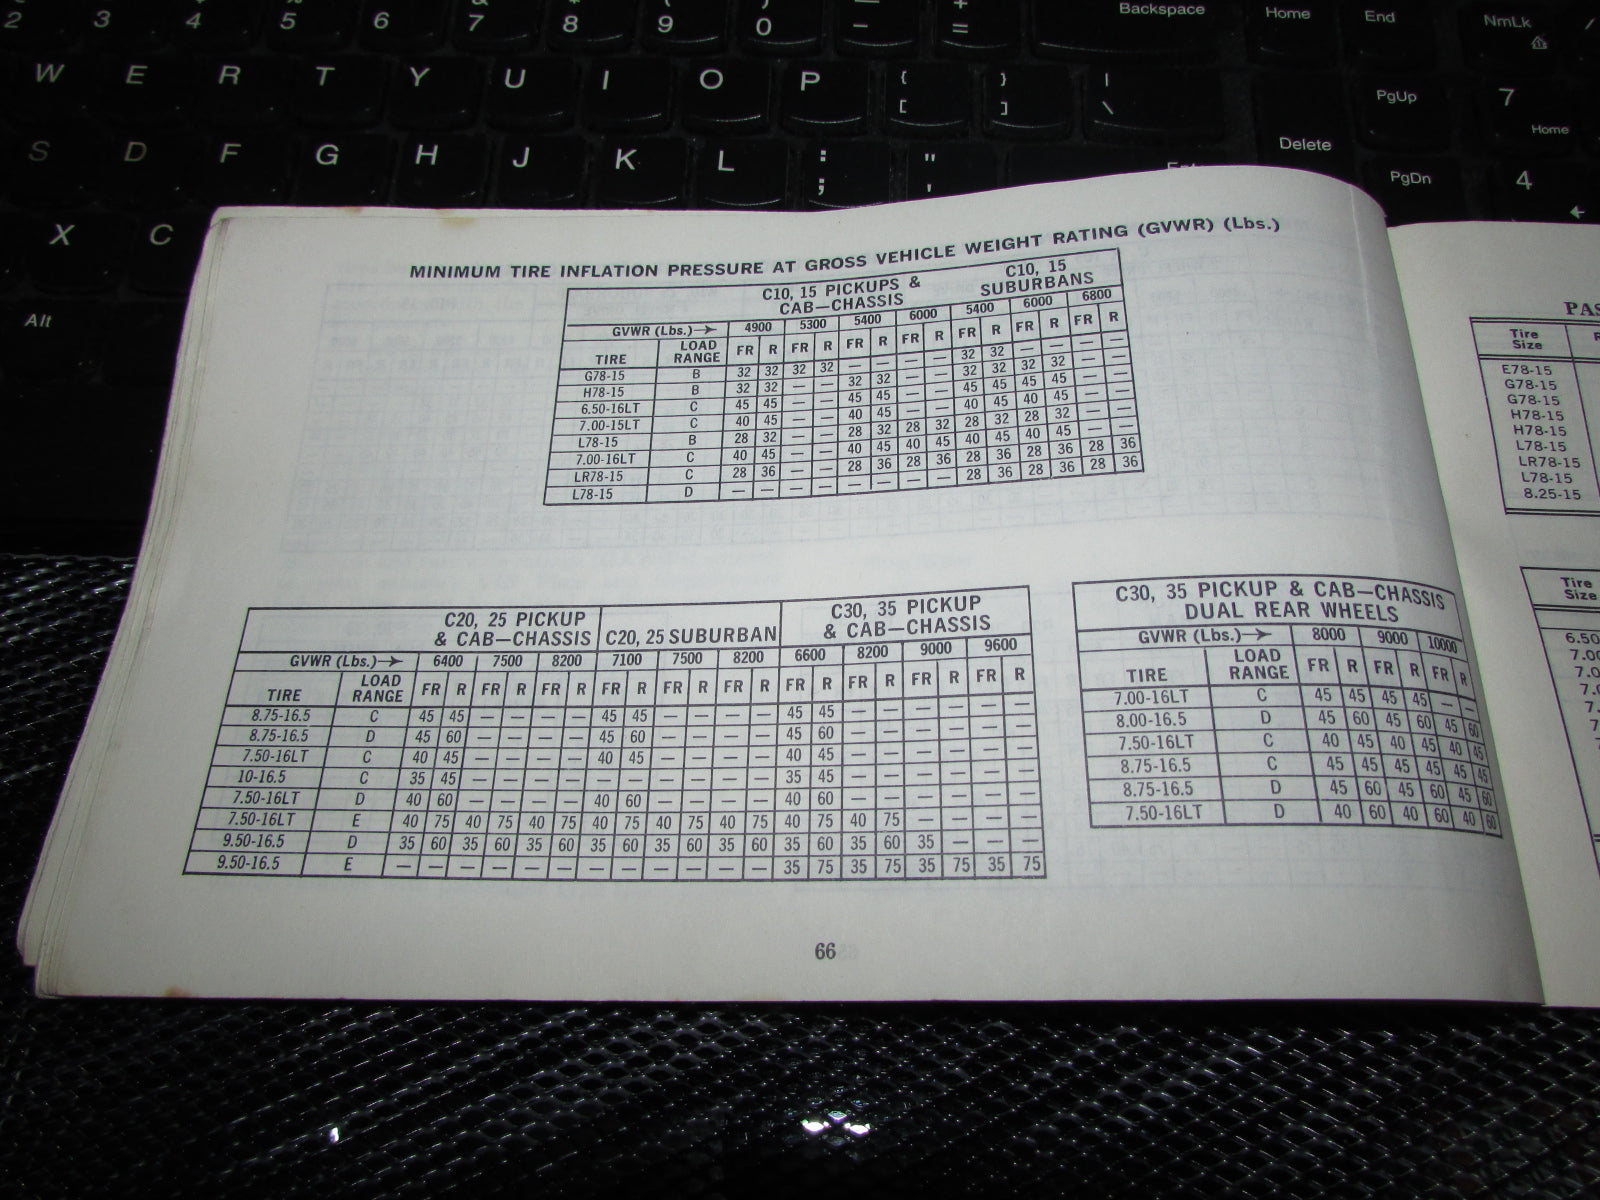 2 3 4 5 6 7 8 9 0 – + =
Backspace Home End NmLk /
W E R T Y U I O P { [ } ] | \ PgUp 7 Home
S D F G H J K L : ; " ' Delete PgDn 4
X C
Alt
MINIMUM TIRE INFLATION PRESSURE AT GROSS VEHICLE WEIGHT RATING (GVWR) (Lbs.)
C10, 15 PICKUPS & CAB—CHASSIS C10, 15 SUBURBANS
GVWR (Lbs.)→ 4900 5300 5400 6000 5400 6000 6800
TIRE LOAD RANGE FR R FR R FR R FR R FR R FR R FR R
G78-15 B 32 32 32 32 — — — — 32 32 — — — —
H78-15 B 32 32 — — 32 32 — — 32 32 32 32 — —
6.50-16LT C 45 45 — — 45 45 — — 45 45 45 45 — —
7.00-15LT C 40 45 — — 40 45 — — 40 45 40 45 — —
L78-15 B 28 32 — — 28 32 28 32 28 32 28 32 — —
7.00-16LT C 40 45 — — 40 45 40 45 40 45 40 45 — —
LR78-15 C 28 36 — — 28 36 28 36 28 36 28 36 28 36
L78-15 D — — — — — — — — 28 36 28 36 28 36
C20, 25 PICKUP & CAB—CHASSIS C20, 25 SUBURBAN C30, 35 PICKUP & CAB—CHASSIS
GVWR (Lbs.)→ 6400 7500 8200 7100 7500 8200 6600 8200 9000 9600
TIRE LOAD RANGE FR R FR R FR R FR R FR R FR R FR R FR R FR R FR R
8.75-16.5 C 45 45 — — — — 45 45 — — — — 45 45 — — — — — —
8.75-16.5 D 45 60 — — — — 45 60 — — — — 45 60 — — — — — —
7.50-16LT C 40 45 — — — — 40 45 — — — — 40 45 — — — — — —
10-16.5 C 35 45 — — — — — — — — — — 35 45 — — — — — —
7.50-16LT D 40 60 — — — — 40 60 — — — — 40 60 — — — — — —
7.50-16LT E 40 75 40 75 40 75 40 75 40 75 40 75 40 75 40 75 — — — —
9.50-16.5 D 35 60 35 60 35 60 35 60 35 60 35 60 35 60 35 60 35 — — —
9.50-16.5 E — — — — — — — — — — — — 35 75 35 75 35 75 35 75
C30, 35 PICKUP & CAB—CHASSIS DUAL REAR WHEELS
GVWR (Lbs.)→ 8000 9000 10000
TIRE LOAD RANGE FR R FR R FR R
7.00-16LT C 45 45 45 45 — —
8.00-16.5 D 45 60 45 60 45 60
7.50-16LT C 40 45 40 45 40 45
8.75-16.5 C 45 45 45 45 45 45
8.75-16.5 D 45 60 45 60 45 60
7.50-16LT D 40 60 40 60 40 60
66
PAS
Tire Size
E78-15
G78-15
G78-15
H78-15
H78-15
L78-15
LR78-15
L78-15
8.25-15
Tire Size
6.50
7.00